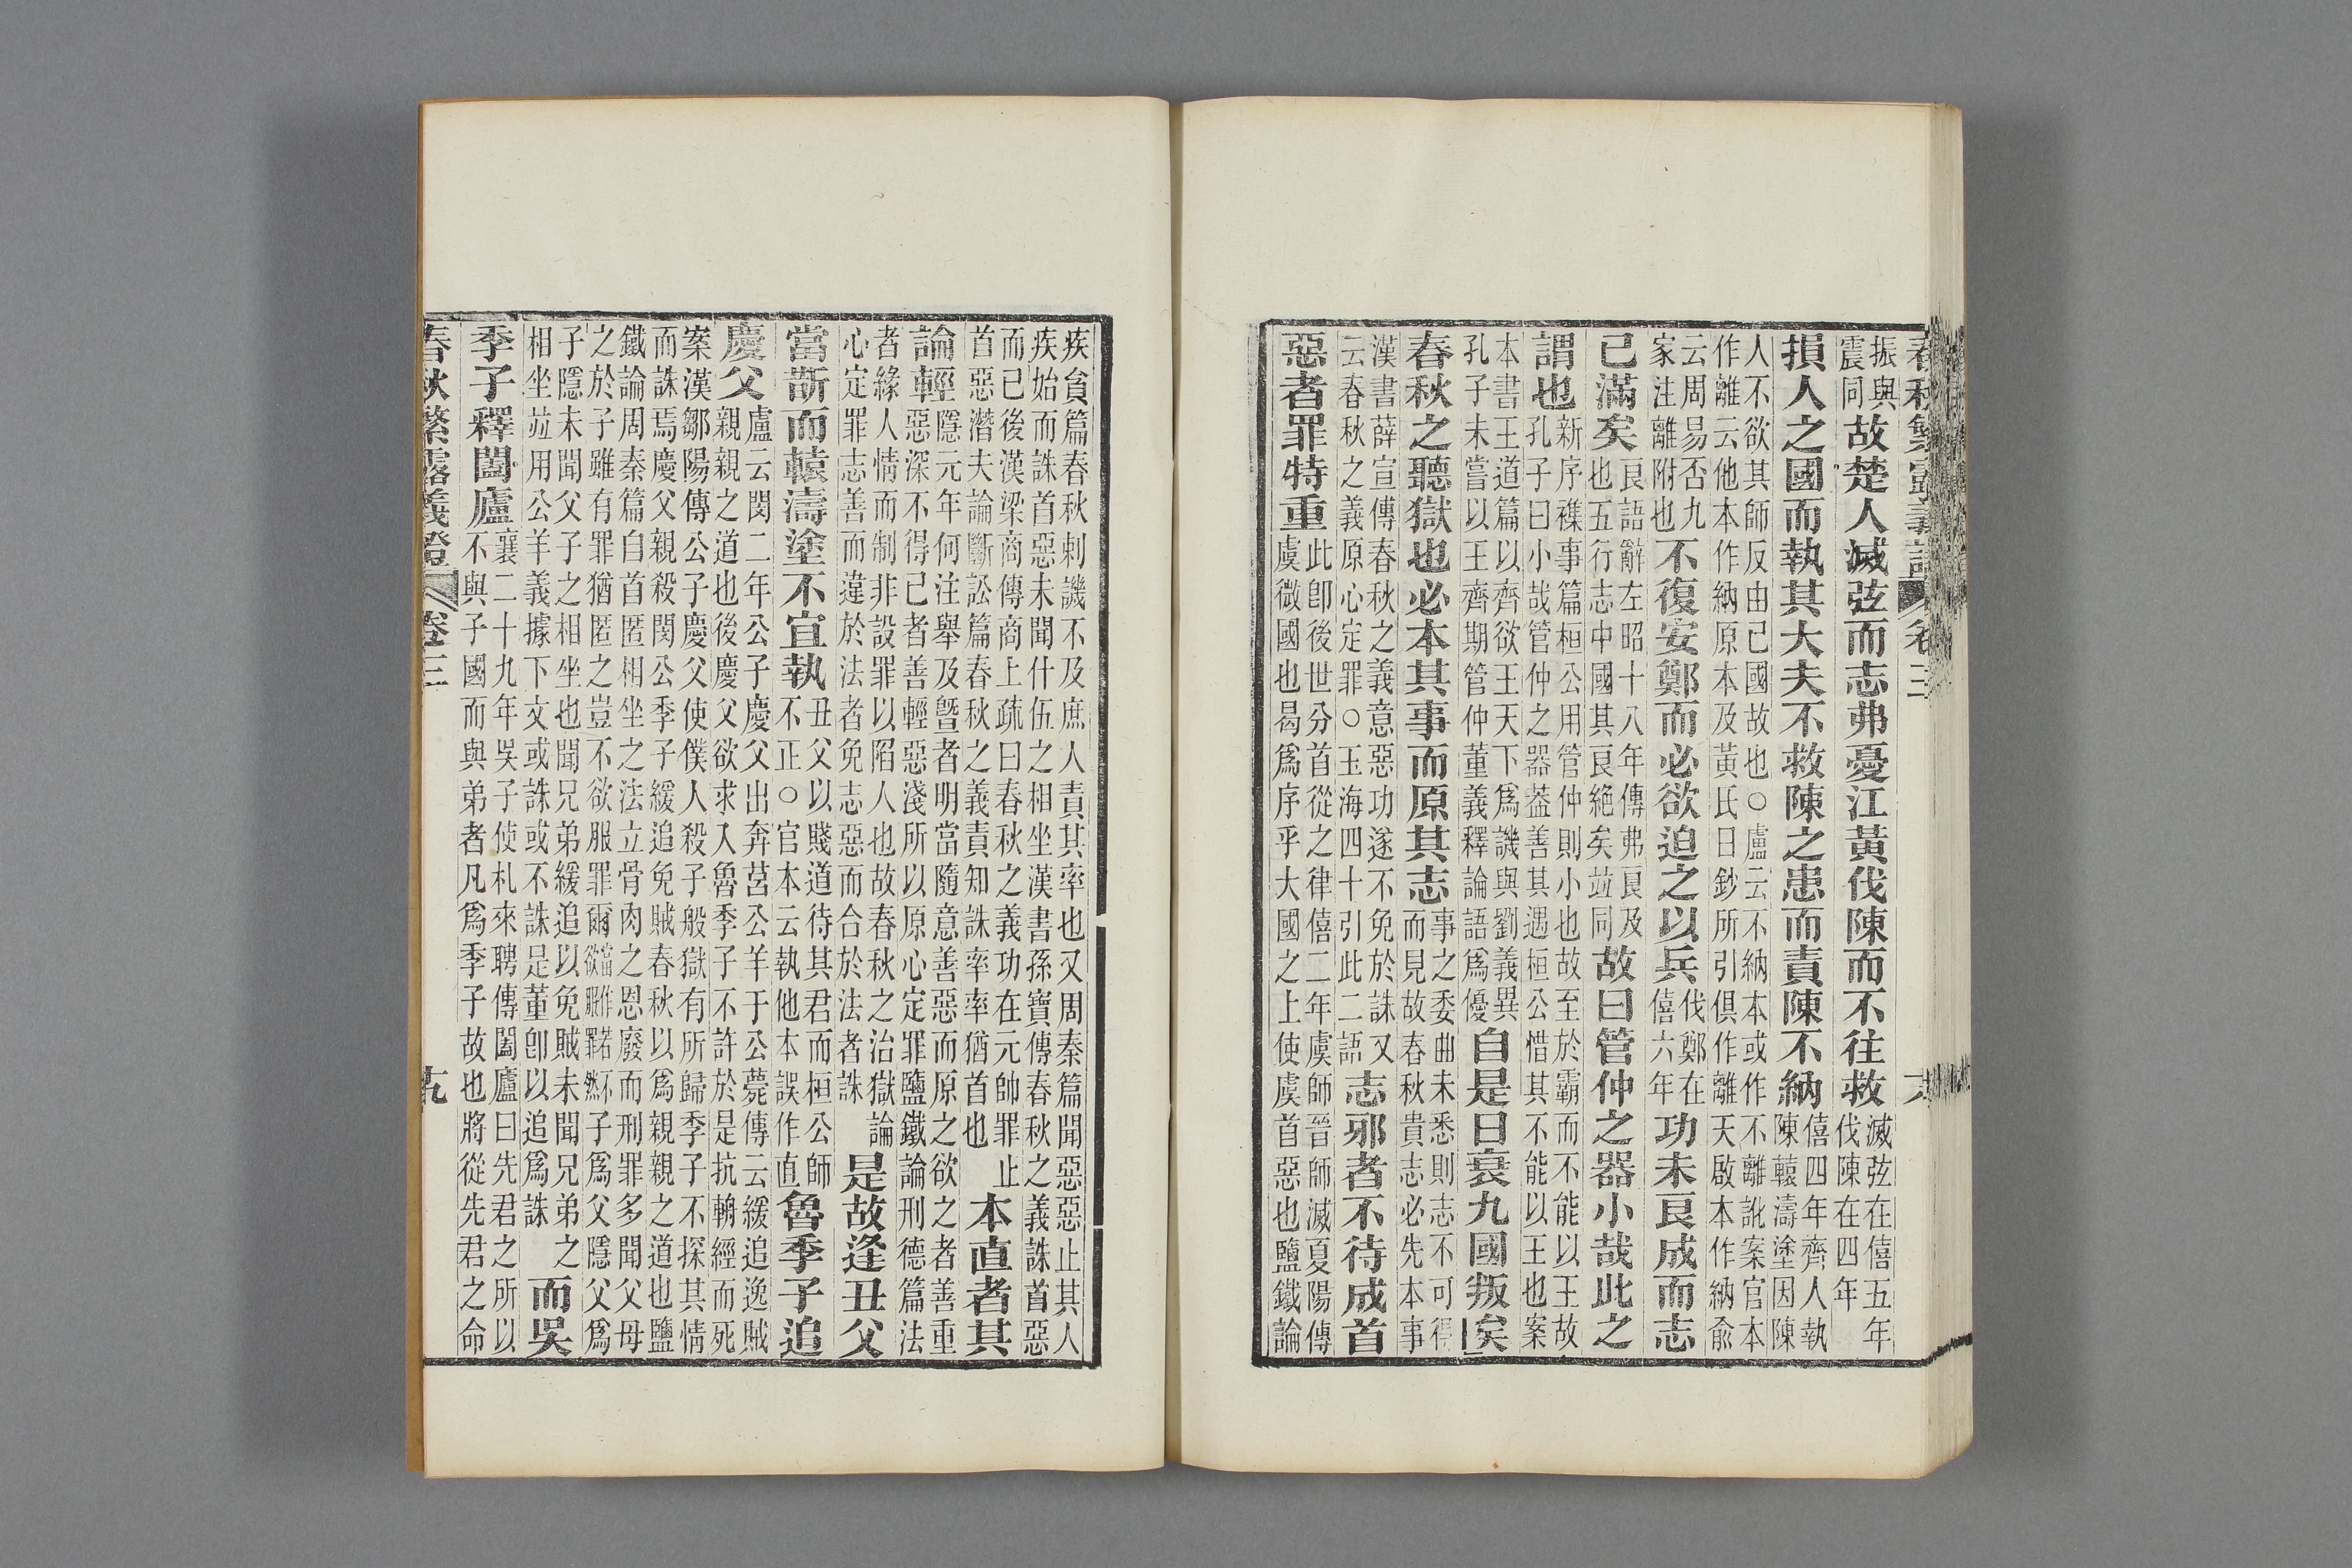 春秋繁露義證 卷三 六
振與
震同
故楚人滅弦而志弗憂江黃伐陳而不往救
滅弦在僖五年
伐陳在四年
損人之國而執其大夫不救陳之患而責陳不納
僖四年齊人執
陳轅濤塗因陳
人不欲其師反由己國故也○盧云不納本或作不離訛案官本
作離云他本作納原本及黃氏日鈔所引俱作離天啟本作納兪
云周易否九
家注離附也
不復安鄭而必欲迫之以兵
伐鄭在
僖六年
功未良成而志
已滿矣
良語辭左昭十八年傳弗良及
也五行志中國其良絕矣竝同
故曰管仲之器小哉此之
謂也
新序襍事篇桓公用管仲則小也故至於霸而不能以王故
孔子曰小哉管仲之器葢善其遇桓公惜其不能以王也案
本書王道篇以齊欲王天下爲譏與劉義異
孔子未嘗以王齊期管仲董義釋論語爲優
自是日衰九國叛矣
春秋之聽獄也必本其事而原其志
事之委曲未悉則志不可得
而見故春秋貴志必先本事
漢書薛宣傳春秋之義意惡功遂不免於誅又
云春秋之義原心定罪○玉海四十引此二語
志邪者不待成首
惡者罪特重
此卽後世分首從之律僖二年虞師晉師滅夏陽傳
虞微國也曷爲序乎大國之上使虞首惡也鹽鐵論
疾貪篇春秋刺譏不及庶人責其率也又周秦篇聞惡惡止其人
疾始而誅首惡未聞什伍之相坐漢書孫寶傳春秋之義誅首惡
而已後漢梁商傳商上疏曰春秋之義功在元帥罪止
首惡潛夫論斷訟篇春秋之義責知誅率率猶首也
本直者其
論輕
隱元年何注舉及曁者明當隨意善惡而原之欲之者善重
惡深不得已者善輕惡淺所以原心定罪鹽鐵論刑德篇法
者緣人情而制非設罪以陷人也故春秋之治獄論
心定罪志善而違於法者免志惡而合於法者誅
是故逢丑父
當斮而轅濤塗不宜執
丑父以賤道待其君而桓公師
不正○官本云執他本誤作直
魯季子追
慶父
盧云閔二年公子慶父出奔莒公羊于公薨傳云緩追逸賊
親親之道也後慶父欲求入魯季子不許於是抗輈經而死
案漢鄒陽傳公子慶父使僕人殺子般獄有所歸季子不探其情
而誅焉慶父親殺閔公季子緩追免賊春秋以爲親親之道也鹽
鐵論周秦篇自首匿相坐之法立骨肉之恩廢而刑罪多聞父母
之於子雖有罪猶匿之豈不欲服罪爾
當作若不
欲服罪然
子爲父隱父爲
子隱未聞父子之相坐也聞兄弟緩追以免賊未聞兄弟之
相坐竝用公羊義據下文或誅或不誅是董卽以追爲誅
而吳
季子釋闔廬
襄二十九年吳子使札來聘傳闔廬曰先君之所以
不與子國而與弟者凡爲季子故也將從先君之命
春秋繁露義證 卷三 十九